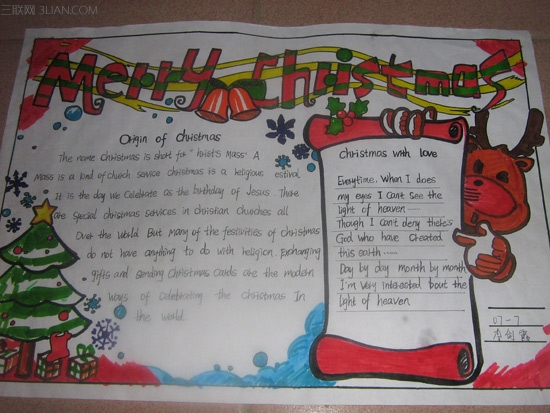 三联网 3LIAN.COM
Merry Christmas
Origin of Christmas
The name Christmas is short for "hrist's Mass". A
Mass is a kind of church service Christmas is a religious estival
It is the day We Celebrate as the birthday of Jesus. There
are special christmas services in christian Churches all
Over the World But many of the festivities of christmas
do not have anything to do with religion. Exchanging
gifts and sending Christmas Cards are the modern
Ways of Celebrating the Christmas In
the world.
Christmas with love
Everytime. When I does
my eyes I Can't See the
light of heaven
Though I can't deny there's
God who have Created
this earth ......
Day by day month by month
I'm very interested bout the
light of heaven
07-7